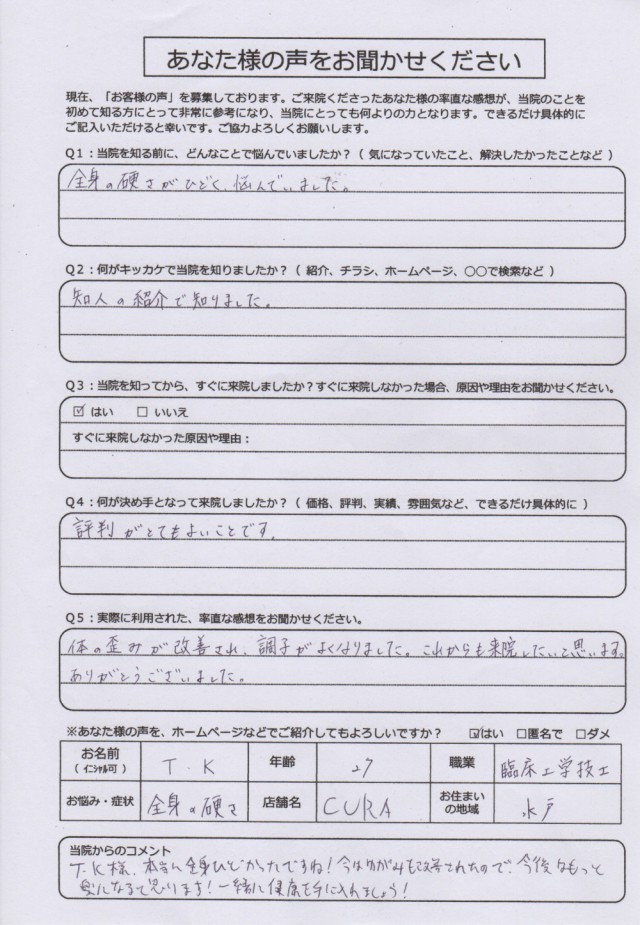 あなた様の声をお聞かせください
現在、「お客様の声」を募集しております。ご来院くださったあなた様の率直な感想が、当院のことを
初めて知る方にとって非常に参考になり、当院にとっても何よりの力となります。できるだけ具体的に
ご記入いただけると幸いです。ご協力よろしくお願いします。
Q1：当院を知る前に、どんなことで悩んでいましたか？（ 気になっていたこと、解決したかったことなど ）
全身の硬さがひどく、悩んでいました。
Q2：何がキッカケで当院を知りましたか？（ 紹介、チラシ、ホームページ、○○で検索など ）
知人の紹介で知りました。
Q3：当院を知ってから、すぐに来院しましたか？すぐに来院しなかった場合、原因や理由をお聞かせください。
☑ はい □ いいえ
すぐに来院しなかった原因や理由：
Q4：何が決め手となって来院しましたか？（ 価格、評判、実績、雰囲気など、できるだけ具体的に ）
評判がとてもよいことです。
Q5：実際に利用された、率直な感想をお聞かせください。
体の歪みが改善され、調子がよくなりました。これからも来院したいと思います。
ありがとうございました。
※あなた様の声を、ホームページなどでご紹介してもよろしいですか？ ☑はい □匿名で □ダメ
お名前（イニシャル可） T.K 年齢 27 職業 臨床工学技士
お悩み・症状 全身の硬さ 店舗名 CURA お住まいの地域 水戸
当院からのコメント
T.K様、本当に全身ひどかったですね！今はゆがみも改善されたので、今後はもっと
楽になると思います！一緒に健康を手に入れましょう！